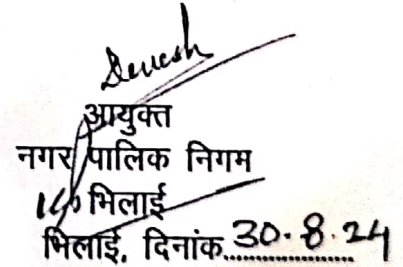 आयुक्त
नगर पालिक निगम
भिलाई
भिलाई, दिनांक 30.8.24